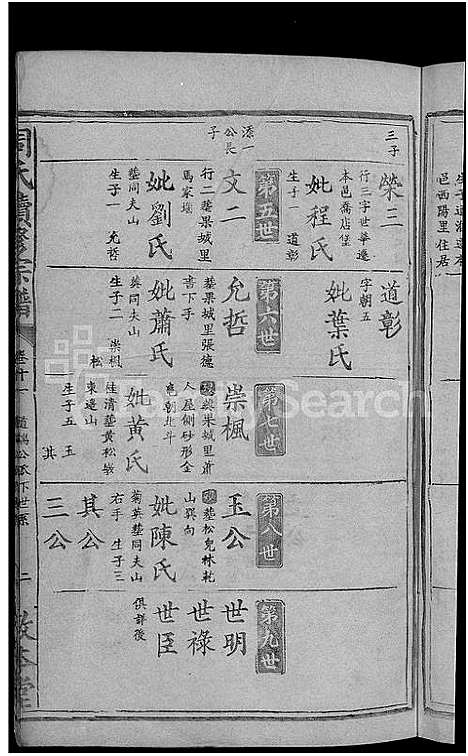 生子遇港遷本
邑西陽里住居
三子
榮三
行三字世華遷
本邑喬店堡
妣程氏
生子一 道彰
道彰
字朝五
妣葉氏
第五世
第六世
第七世
第八世
第九世
添一
公長
子
文二
行二塟果城里
馬家塅
妣劉氏
塟同夫山
生子一 允哲
允哲
塟果城里張德
書下手
妣蕭氏
塟同夫山
生子二 崇楓
松
崇楓
塟果城里蕭
人屋側砂形金
竜朝北斗
妣黃氏
桂清塟黃松嶺
東邊山
生子五 玉
其
玉公
塟松兒林乾
山巽向
妣陳氏
菊英塟同夫山
右手 生子三
其公
三公
世明
世祿
世臣
俱詳後
周氏續修宗譜
卷十一
公派下世系
二
敦本堂
SearchSearch